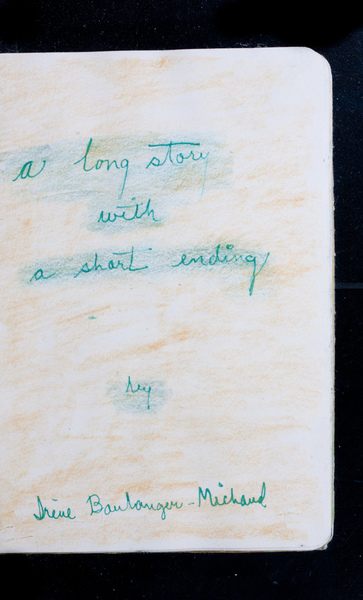 a long story
with
a short ending
by
Irène Boulanger-Michaud